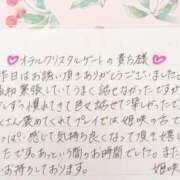 ♥オテルクリスタルゲートの貴台様♥
昨日はお誘い頂きありがとうございました
最初緊張していてうまく話せなかったですが
すっかり慣れて色々話せて楽しかったで
くさん褒めてくれてプレイでは姫咲の舌で
っぱい感じて気持ち良くなって頂き嬉し
たです♡あっという間のお時間でした♡また
したいです♡ 姫咲